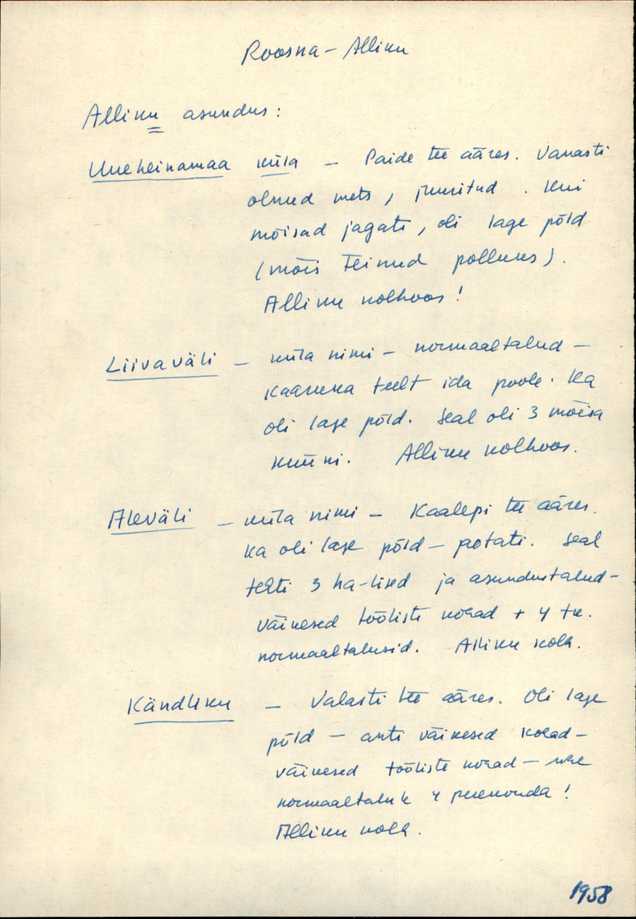 Roosna-Alliku
Alliku asundus:
Uueheinamaa küla – Paide tee ääres. Vanasti
olnud mets, juuritud. Kui
mõisad jagati, oli lage põld
(mõis teinud põlluks).
Alliku kolhoos!
Liivaväli – küla nimi – normaaltalud –
teelt ida poole. Ka
oli lage põld. Seal oli 3 mõisa
küüni. Alliku kolhoos.
Aleväli – küla nimi – Kaalepi tee ääres.
Ka oli lage põld – jaotati. Seal
tehti 3 ha-lised ja asundustalud –
väikesed tööliste kohad + 4 tk.
normaaltalusid. Alliku kolh.
Kändliku – Valasti tee ääres. Oli lage
põld – anti väikesed kohad –
väikesed tööliste kohad – ühe
normaaltaluk 4 perekonda!
Alliku kolh.
1958